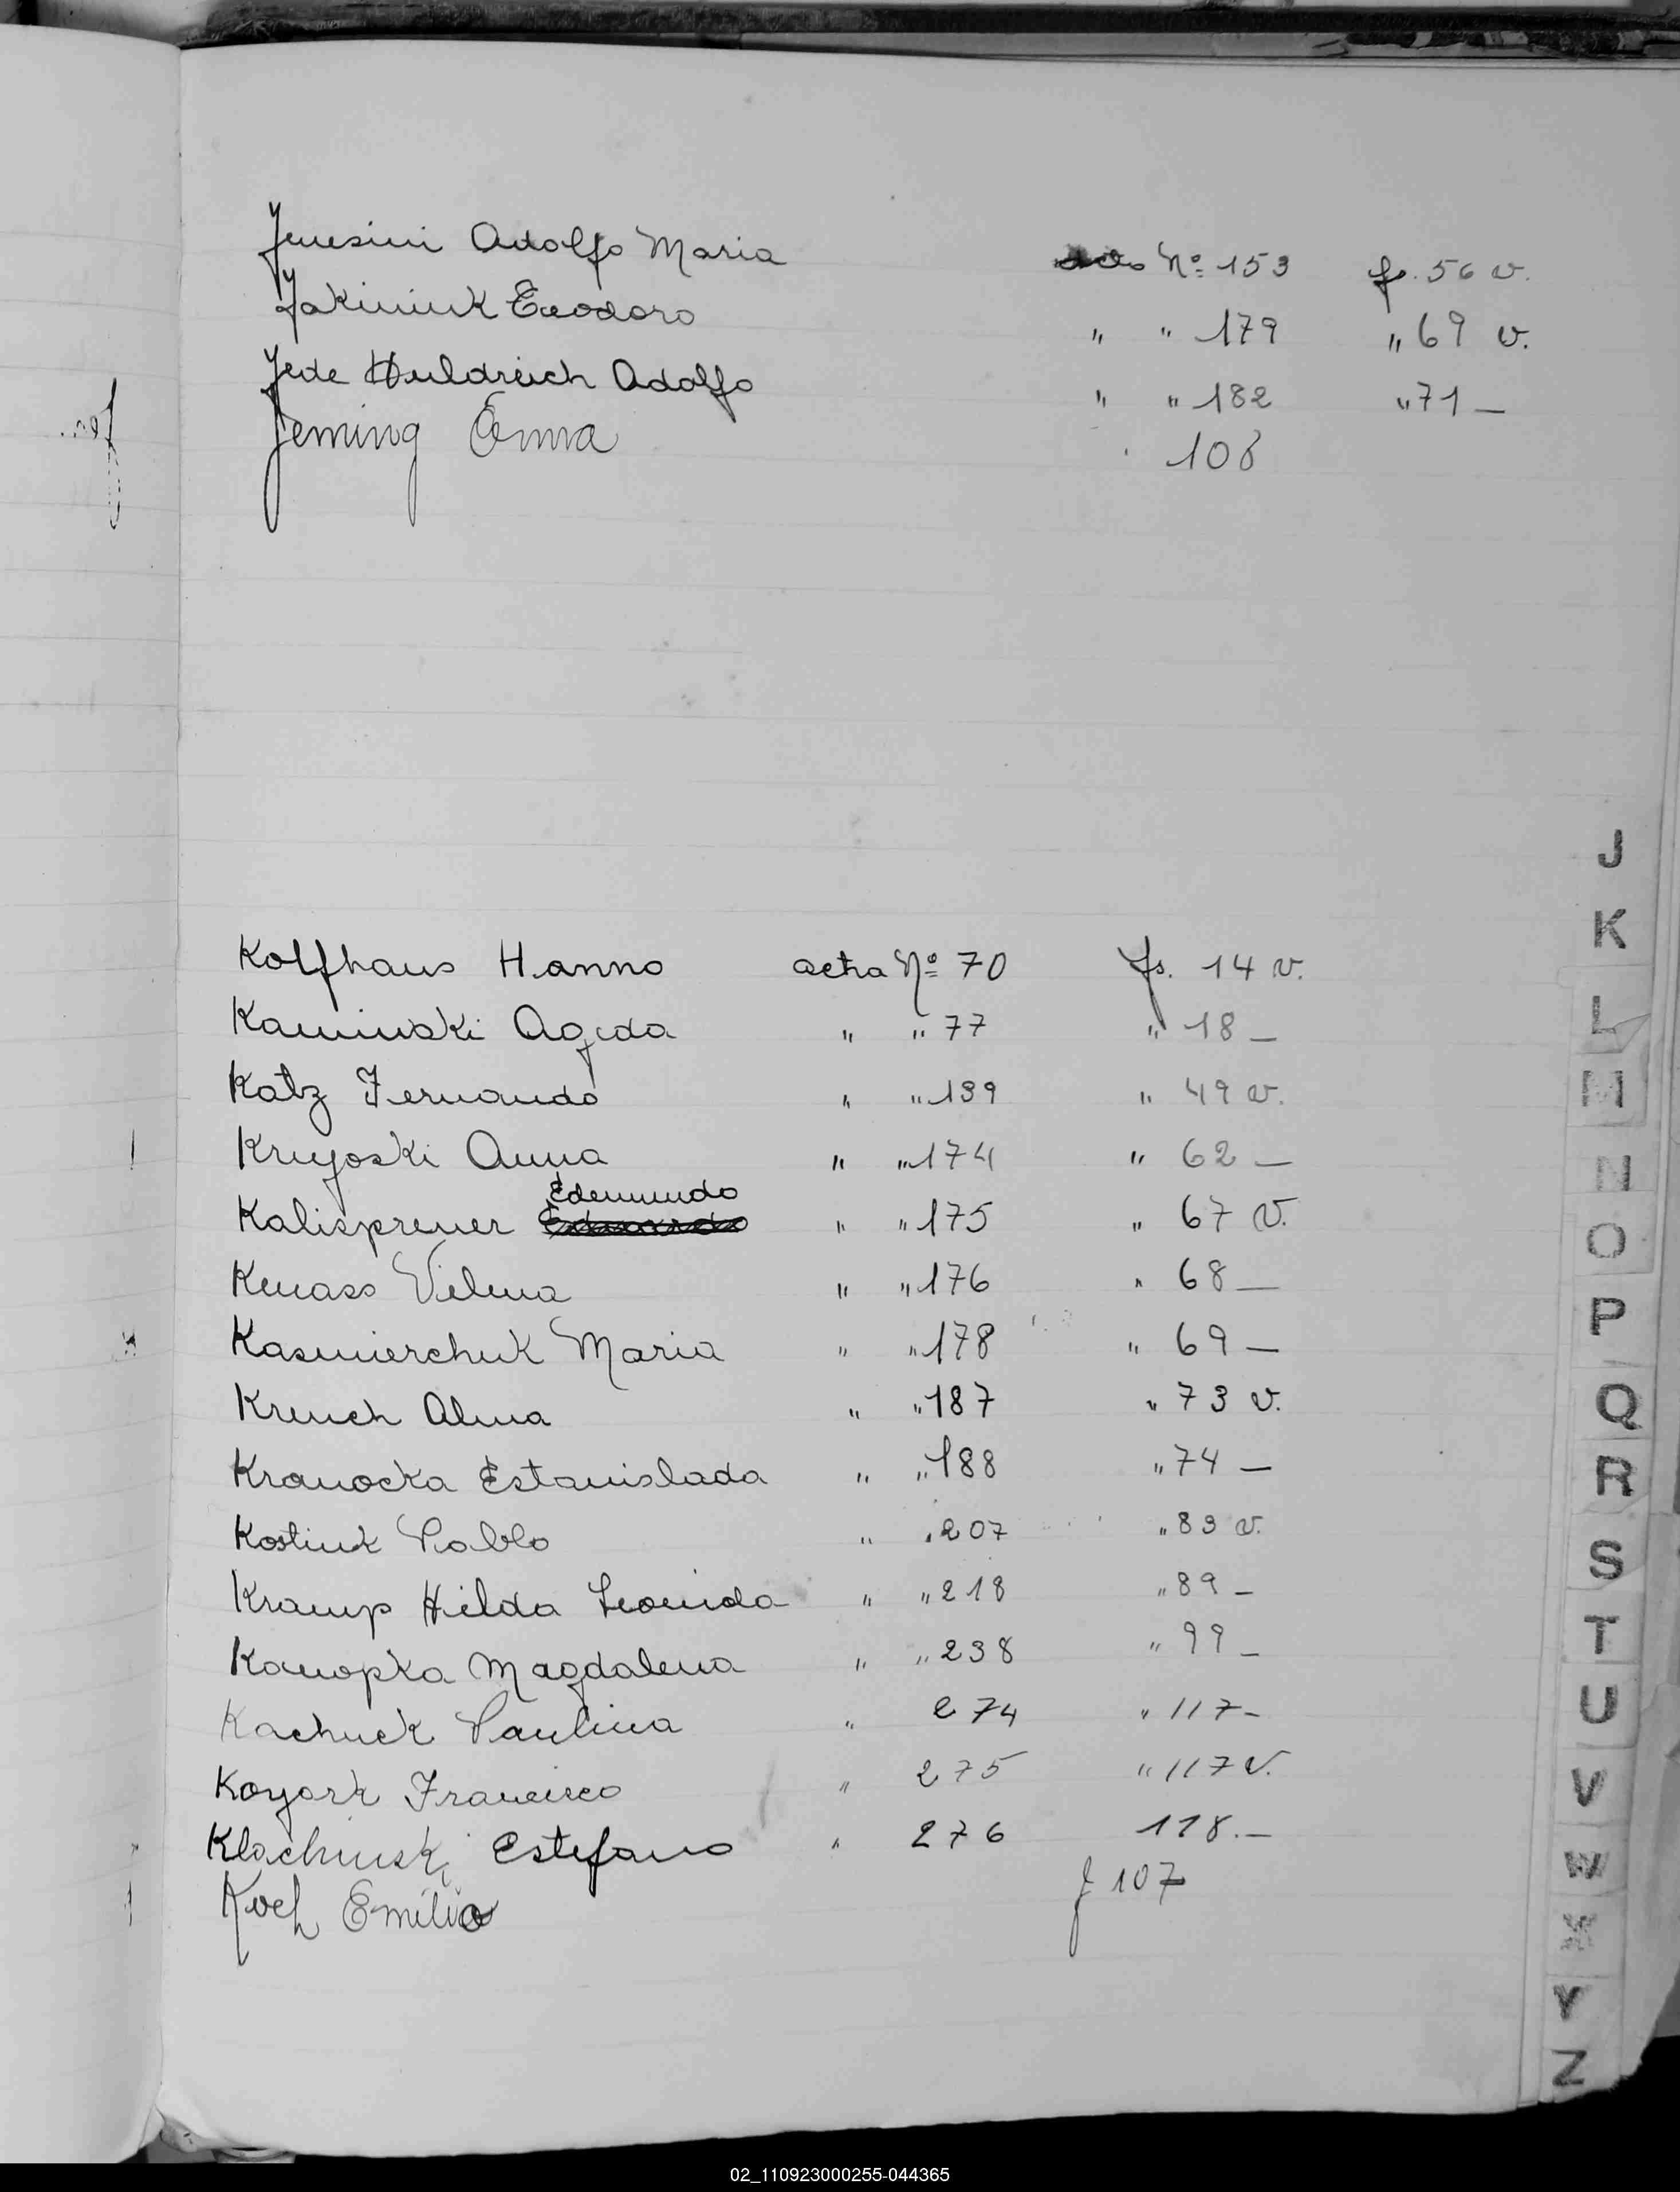 Jenesini Adolfo Maria Nº 153 fs. 56 v.
Jakiniuk Teodoro " " 179 " 69 v.
Jede Huldreich Adolfo " " 182 " 71 —
Jeming Anna 108
J
K
L
M
N
O
P
Q
R
S
T
U
V
W
X
Y
Z
Kolfhaus Hanno acta Nº 70 fs. 14 v.
Kaminski Ageda " " 77 " 18 —
Katz Fernando " " 139 " 49 v.
Kruyoski Anna " " 174 " 62 —
Edemundo
Kalisprener " " 175 " 67 v.
Kenass Vilma " " 176 " 68 —
Kasmierchuk Maria " " 178 " 69 —
Krench Alma " " 187 " 73 v.
Kranocka Estanislada " " 188 " 74 —
Kostiuk Pablo " " 207 " 83 v.
Kramp Hilda Leonida " " 218 " 89 —
Kanopka Magdalena " " 238 " 99 —
Kachuck Paulina " 274 " 117 —
Koyark Francisco " 275 " 117 v.
Klachinski Estefano " 276 118. —
Koch Emilio f 107
02_110923000255-044365